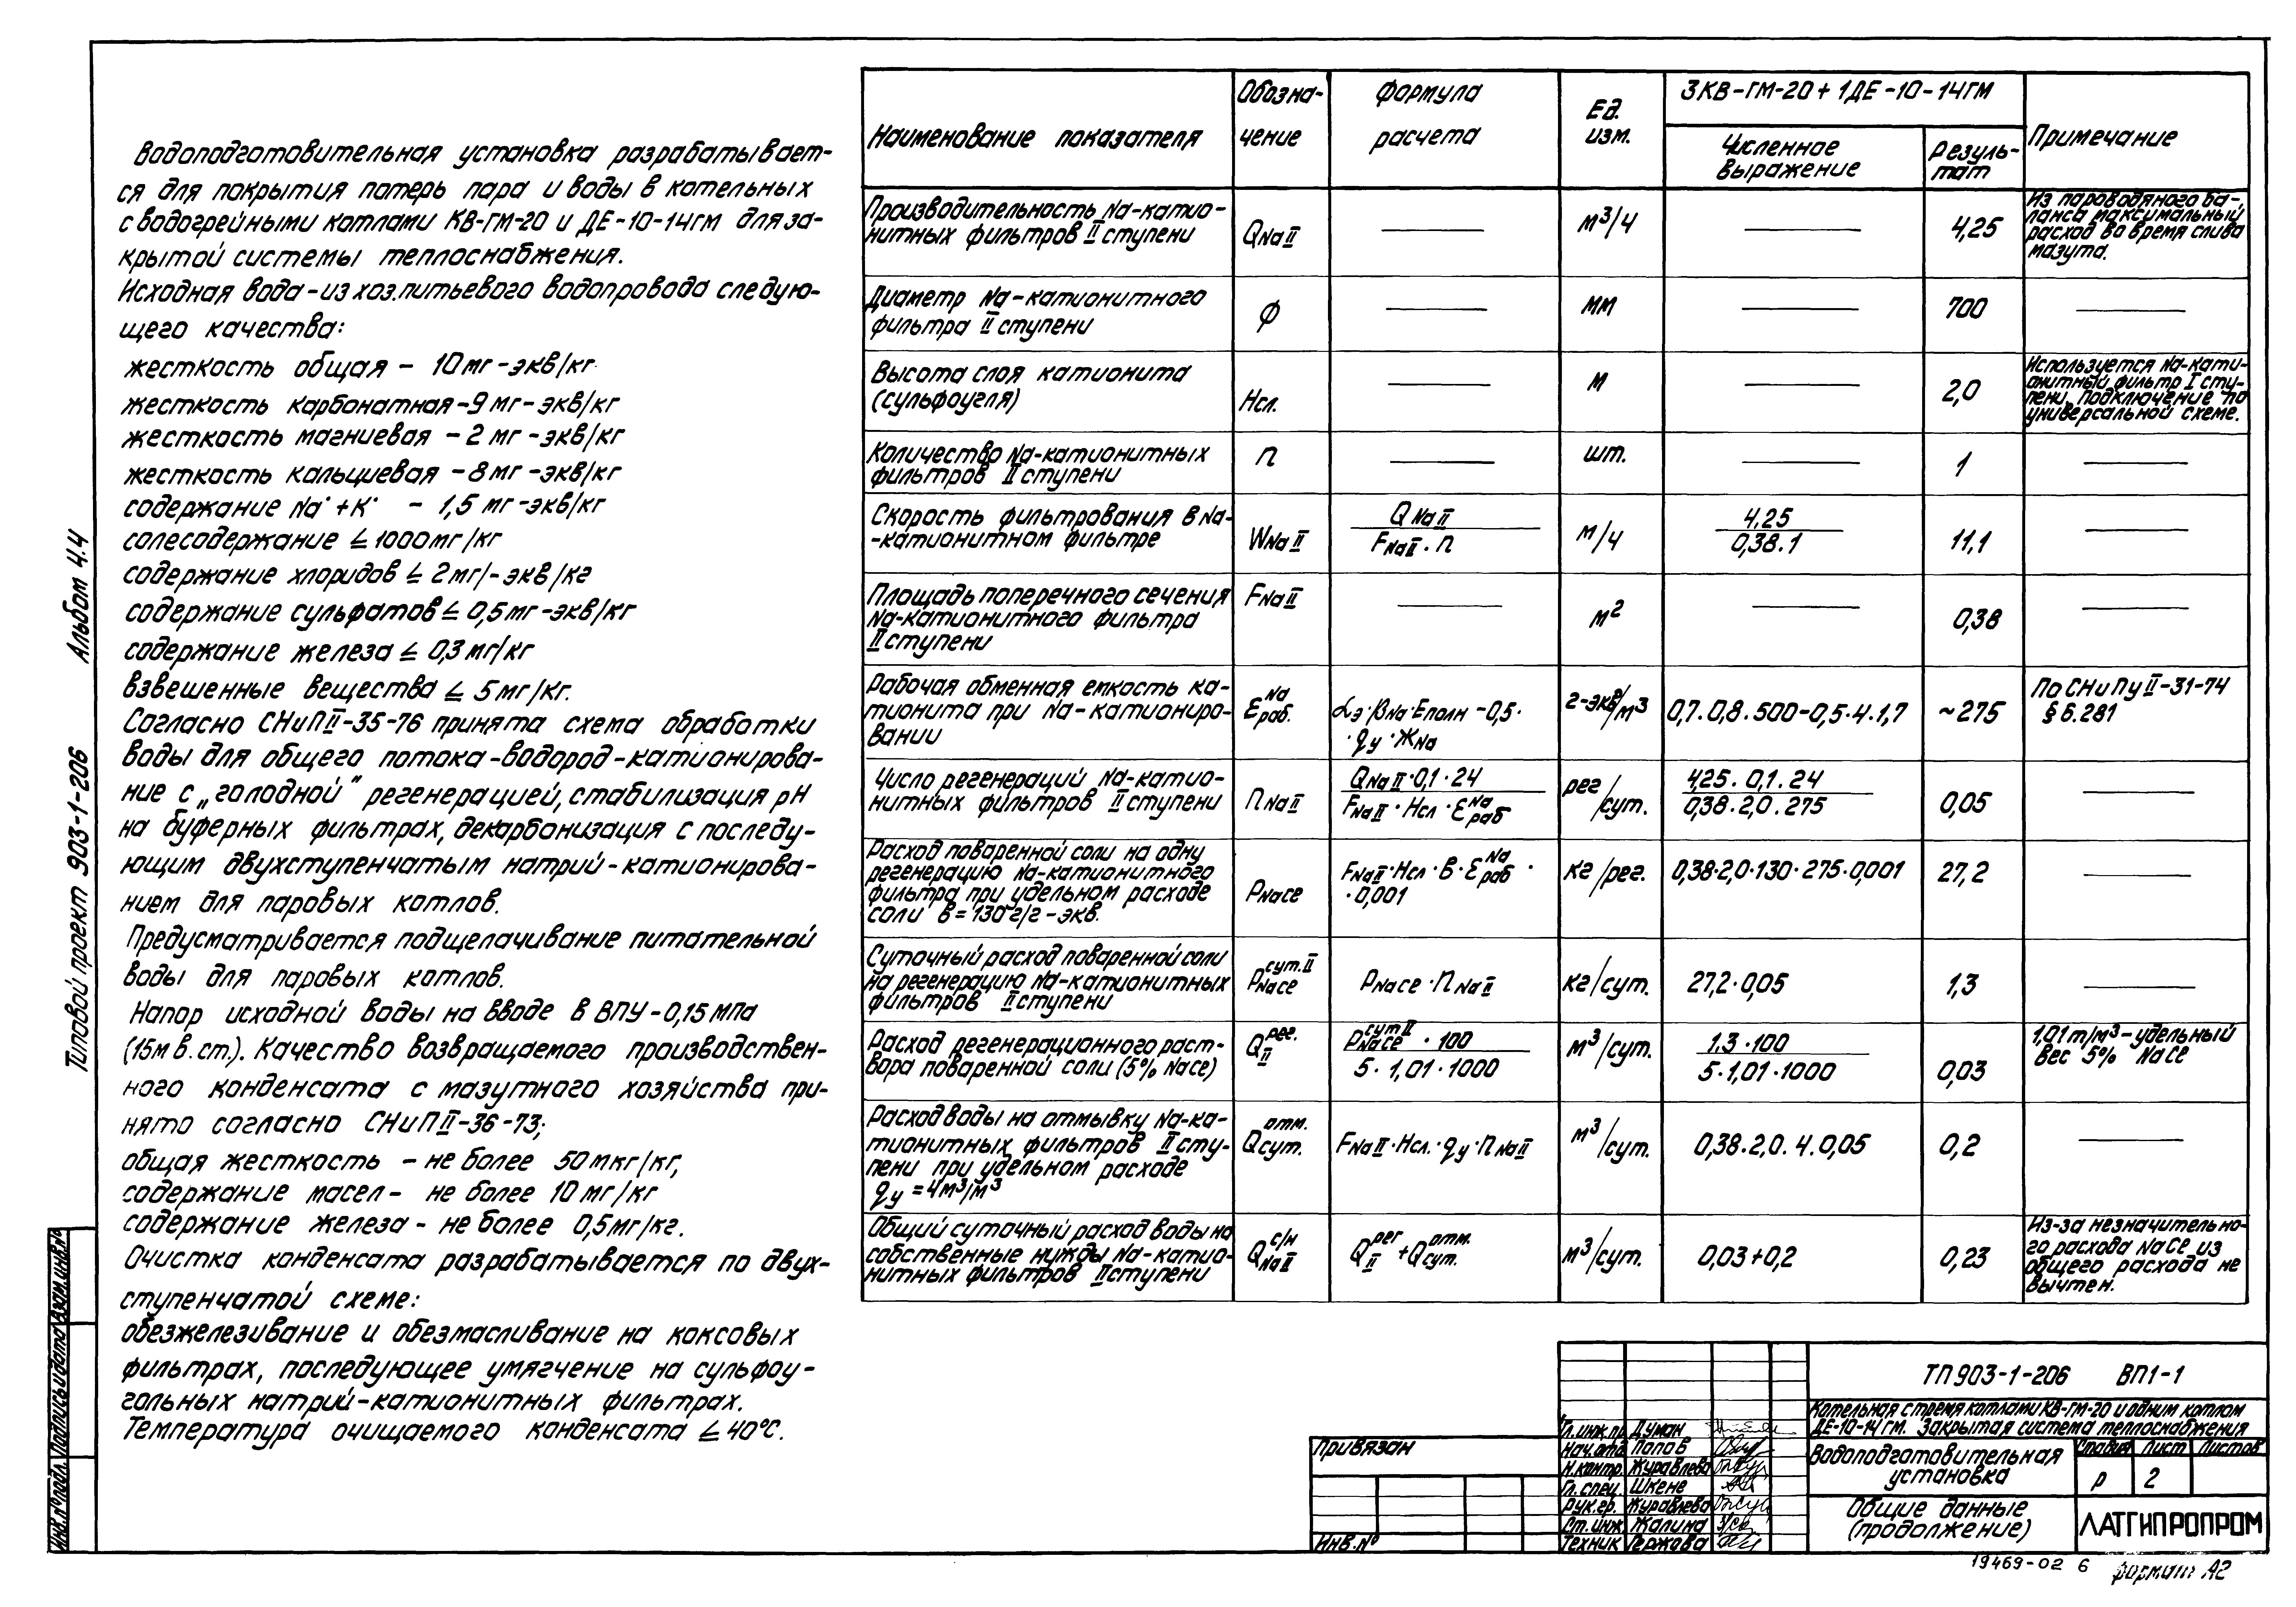 Водоподготовительная установка разрабатывает-
ся для покрытия потерь пара и воды в котельных
с водогрейными котлами КВ-ГМ-20 и ДЕ-10-14ГМ для за-
крытой системы теплоснабжения.
Исходная вода - из хоз.питьевого водопровода следую-
щего качества:
жесткость общая - 10 мг-экв/кг
жесткость карбонатная - 9 мг-экв/кг
жесткость магниевая - 2 мг-экв/кг
жесткость кальциевая - 8 мг-экв/кг
содержание Na˙ + K˙ - 1,5 мг-экв/кг
солесодержание ≤ 1000 мг/кг
содержание хлоридов ≤ 2 мг/-экв/кг
содержание сульфатов ≤ 0,5 мг-экв/кг
содержание железа ≤ 0,3 мг/кг
взвешенные вещества ≤ 5 мг/кг.
Согласно СНиП II-35-76 принята схема обработки
воды для общего потока - водород-катионирова-
ние с „голодной" регенерацией, стабилизация рН
на буферных фильтрах, декарбонизация с последу-
ющим двухступенчатым натрий-катионирова-
нием для паровых котлов.
Предусматривается подщелачивание питательной
воды для паровых котлов.
Напор исходной воды на вводе в ВПУ - 0,15 мПа
(15м в.ст.). Качество возвращаемого производствен-
ного конденсата с мазутного хозяйства при-
нято согласно СНиП II-36-73;
общая жесткость - не более 50 мкг/кг,
содержание масел - не более 10 мг/кг
содержание железа - не более 0,5 мг/кг.
Очистка конденсата разрабатывается по двух-
ступенчатой схеме:
обезжелезивание и обезмасливание на коксовых
фильтрах, последующее умягчение на сульфоу-
гольных натрий-катионитных фильтрах.
Температура очищаемого конденсата ≤ 40°С.
Наименование показателя
Обозна-
чение
Формула
расчета
Ед.
изм.
3КВ-ГМ-20 + 1ДЕ-10-14ГМ
Численное
выражение
Резуль-
тат
Примечание
Производительность Na-катио-
нитных фильтров II ступени
QNa II
м³/ч
4,25
Из пароводяного ба-
ланса максимальный
расход во время слива
мазута.
Диаметр Na-катионитного
фильтра II ступени
ϕ
мм
700
Высота слоя катионита
(сульфоугля)
Нсл.
м
2,0
Используется Na-кати-
онитный фильтр I сту-
пени. Подключение по
универсальной схеме.
Количество Na-катионитных
фильтров II ступени
n
шт.
1
Скорость фильтрования в Na-
-катионитном фильтре
WNa II
QNa II
FNa II · n
м/ч
4,25
0,38 . 1
11,1
Площадь поперечного сечения
Na-катионитного фильтра
II ступени
FNa II
м²
0,38
Рабочая обменная емкость ка-
тионита при Na-катиониро-
вании
Ɛ Na раб.
αэ · βNa · Еполн - 0,5 ·
· qу · ЖNa
г-экв/м³
0,7 . 0,8 . 500 - 0,5 · 4 · 1,7
~275
По СНиПу II-31-74
§ 6.281
Число регенераций Na-катио-
нитных фильтров II ступени
nNa II
QNa II · 0,1 · 24
FNa II · Нсл · Ɛ Na раб
рег/сут.
4,25 . 0,1 . 24
0,38 · 2,0 . 275
0,05
Расход поваренной соли на одну
регенерацию Na-катионитного
фильтра при удельном расходе
соли в = 130 г/г-экв.
РNaCe
FNa II · Нсл · В · Ɛ Na раб ·
· 0,001
кг/рег.
0,38 · 2,0 · 130 · 275 · 0,001
27,2
Суточный расход поваренной соли
на регенерацию Na-катионитных
фильтров II ступени
Р сут. II NaCe
РNaCe · nNa II
кг/сут.
27,2 · 0,05
1,3
Расход регенерационного раст-
вора поваренной соли (5% NaCe)
Q рег. II
Р сут II NaCe · 100
5 · 1,01 · 1000
м³/сут.
1.3 · 100
5 · 1,01 · 1000
0,03
1,01 т/м³ - удельный
вес 5% NaCe
Расход воды на отмывку Na-ка-
тионитных фильтров II сту-
пени при удельном расходе
qу = 4м³/м³
Q отм. сут.
FNa II · Нсл. · qу · nNa II
м³/сут.
0,38 · 2,0 . 4 . 0,05
0,2
Общий суточный расход воды на
собственные нужды Na-катио-
нитных фильтров II ступени
Q с/н Na II
Q рег II + Q отм. сут.
м³/сут.
0,03 + 0,2
0,23
Из-за незначительно-
го расхода NaCe из
общего расхода не
вычтен.
Типовой проект 903-1-206 Альбом 4.4
Инв. № подл. Подпись и дата Взам. инв. №
Привязан
Инв. №
Гл. инж. пр. Думан
Нач. отд. Попов
Н. контр. Журавлева
Гл. спец. Шкене
Рук. гр. Журавлева
Ст. инж. Жалина
Техник Гержова
ТП 903-1-206 ВП1-1
Котельная с тремя котлами КВ-ГМ-20 и одним котлом
ДЕ-10-14 ГМ. Закрытая система теплоснабжения
Водоподготовительная
установка
Стадия Лист Листов
р 2
Общие данные
(продолжение)
ЛАТГИПРОПРОМ
19469-02 6 формат А2